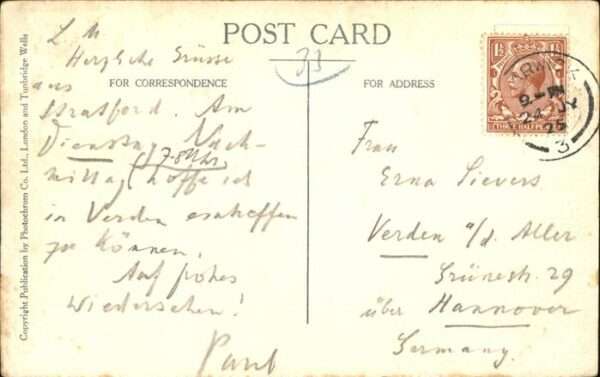 POST CARD
FOR CORRESPONDENCE
FOR ADDRESS
Copyright Publication by Photochrom Co. Ltd., London and Tunbridge Wells
L. M
Herzliche Grüsse
aus
Stratford. Am
Dienstag Nach-
mittag (7-8 Uhr) hoffe ich
in Verden eintreffen
zu können.
Auf frohes
Wiedersehen!
Paul
33
Frau
Erna Sievers
Verden a/d. Aller
Grünestr. 29
über Hannover
Germany.
9-PM
24 JY
25
3